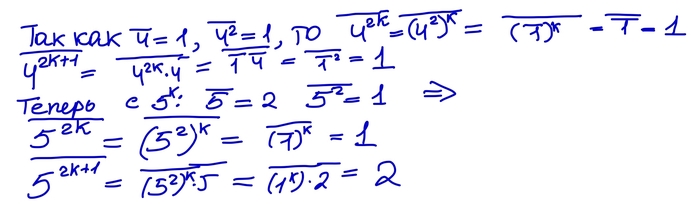 Так как 4̅=1, 4̅²̅=1, то 4̅²̅ᵏ̅=(̅4̅²̅)̅ᵏ̅= (̅1̅)̅ᵏ̅ = 1̅ = 1
4̅²̅ᵏ̅⁺̅¹̅ = 4̅²̅ᵏ̅·̅4̅ = 1̅ 4̅ = 1̅²̅ = 1
Теперь с 5ᵏ: 5̅ = 2 5̅²̅ = 1 ⇒
5̅²̅ᵏ̅ = (̅5̅²̅)̅ᵏ̅ = (̅1̅)̅ᵏ̅ = 1
5̅²̅ᵏ̅⁺̅¹̅ = (̅5̅²̅)̅ᵏ̅·̅5̅ = (̅1̅ᵏ̅)̅·̅2̅ = 2